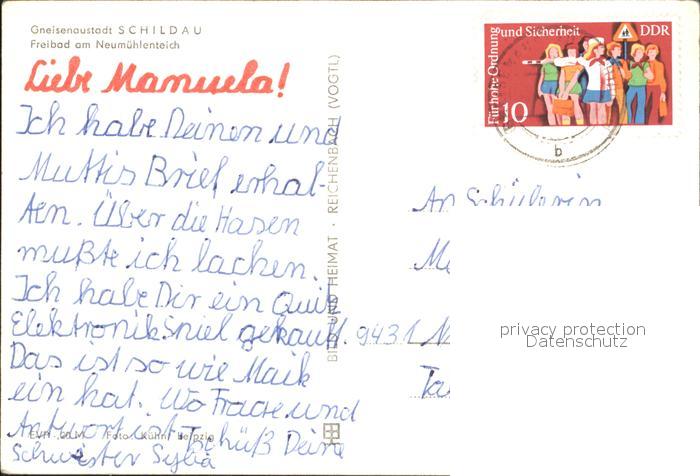 Gneisenaustadt SCHILDAU
Freibad am Neumühlenteich
Liebe Manuela!
Ich habe Deinen und
Muttis Brief erhal-
ten. Über die Hasen
mußte ich lachen.
Ich habe Dir ein Quiz
Elektronik Spiel gekauft.
Das ist so wie Maik
ein hat. Wo Frage und
Antwort ist Tschüß Deine
Schwester Sylia
EVP -,20 M Foto: Kühn, Leipzig
BILD UND HEIMAT · REICHENBACH (VOGTL)
Für hohe Ordnung und Sicherheit
DDR
10
b
An Schülerin
9431
privacy protection
Datenschutz